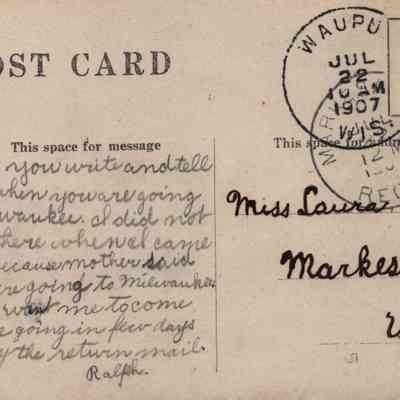 OST CARD
WAUPU
JUL
22
10 AM
1907
WIS.
MAR
12 M
REC
This space for message
This space for addr
you write and tell
when you are going
waukee. I did not
here when I came
because mother said
re going to Milwaukee
want me to come
e going in few days
y the return mail.
Ralph.
Miss Laura
Markes
51